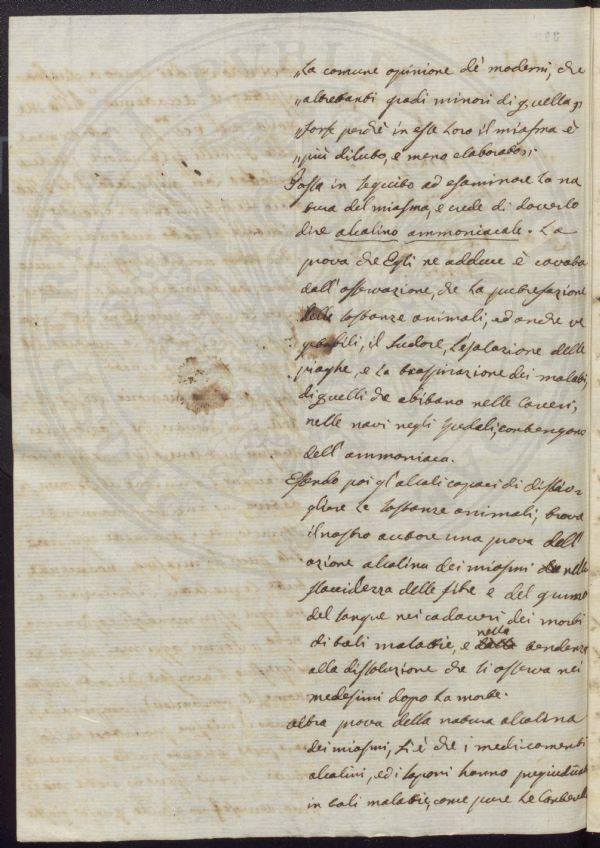 „La comune opinione de' moderni, che
„altrettanti gradi minori di quella,,
„forse perchè in esse loro il miasma è
„più diluto, e meno elaborato„.
Passa in seguito ad esaminare la na
tura del miasma, e crede di doverlo
dire alcalino ammoniacale. La
prova che Egli ne adduce è cavata
dall'osservazione, che la putrefazione
delle sostanze animali, ed anche ve
getabili, il sudore, l'esalazione delle
piaghe, e la traspirazione dei malati,
di quelli che abitano nelle carceri,
nelle navi negli spedali, contengono
dell'ammoniaca.
Essendo poi gl'alcali capaci di discio-
gliere le sostanze animali, trova
il nostro autore una prova dell'
azione alcalina dei miasmi nella
flaccidezza delle fibre e del grume
del sangue nei cadaveri dei morti
di tali malattie, e nella tendenza
alla dissoluzione che si osserva nei
medesimi dopo la morte.
Altra prova della natura alcalina
dei miasmi, si è che i medicamenti
alcalini, ed i saponi hanno pregiudicato
in tali malattie, come pure le